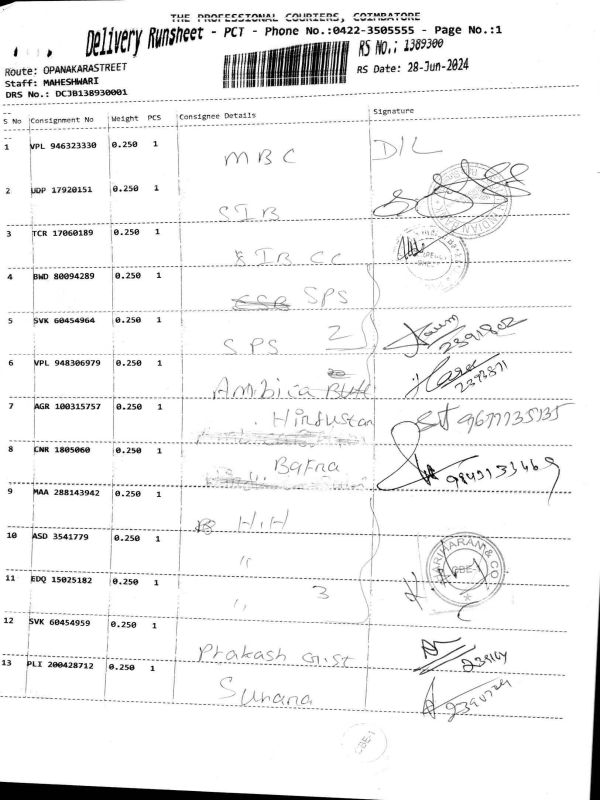 THE PROFESSIONAL COURIERS, COIMBATORE
Delivery Runsheet - PCT - Phone No.:0422-3505555 - Page No.:1
Route: OPANAKARASTREET
RS No.: 1389300
Staff: MAHESHWARI
RS Date: 28-Jun-2024
DRS No.: DCJB138930001
S No Consignment No Weight PCS Consignee Details Signature
1 VPL 946323330 0.250 1 MBC D/L
2 UDP 17920151 0.250 1 SIB
3 TCR 17060189 0.250 1 SIB CC
4 BWD 80094289 0.250 1 SPS
5 SVK 60454964 0.250 1 SPS 2 2391802
6 VPL 948306979 0.250 1 Ambica 2393871
7 AGR 100315757 0.250 1 Hindustan 9677735135
8 CNR 1805060 0.250 1 Bafna
9 MAA 288143942 0.250 1 H.H
10 ASD 3541779 0.250 1 "
HARIHARAM & CO
CBE-1
11 EDQ 15025182 0.250 1 " 3
12 SVK 60454959 0.250 1 Prakash
13 PLI 200428712 0.250 1 Suhana
CBE-1